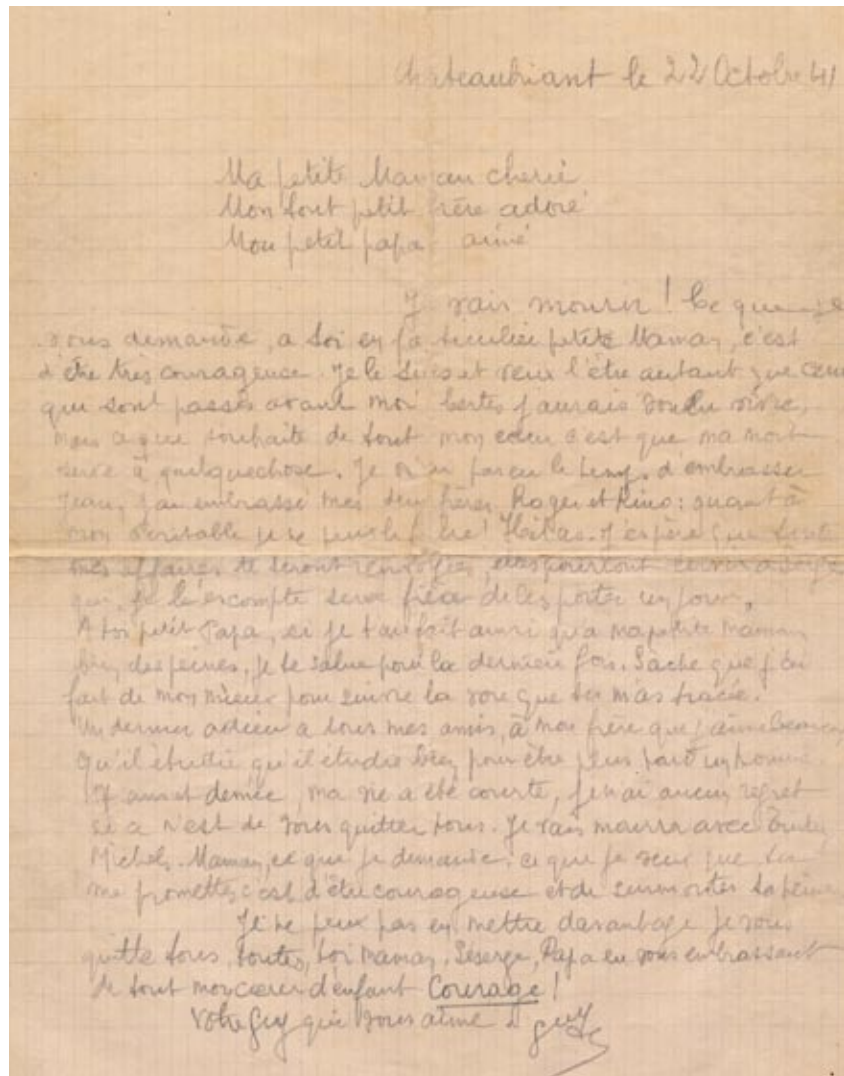 Chateaubriant le 22 Octobre 41
Ma petite Maman cherie
Mon tout petit frère adoré
Mon petit papa aimé
Je vais mourir ! Ce que je
vous demande, a toi en particulier petite Maman, c'est
d'être très courageuse. Je le suis et veux l'être autant que ceux
qui sont passés avant moi. Certes j'aurais voulu vivre,
mais ce que souhaite de tout mon cœur c'est que ma mort
serve à quelquechose. Je n'ai pas eu le temps d'embrasser
Jean, j'ai embrassé mes deux frères, Roger et Rino ; quant à
mon veritable je ne peux le faire ! Hélas. J'espère que toutes
mes affaires te seront renvoyées, elles pourront servir a Serge
qui, je l'escompte sera fier de les porter un jour.
A toi petit Papa, si je t'ai fait ainsi qu'a ma petite Maman
bien des peines, je te salue pour la dernière fois. Sache que j'ai
fait de mon mieux pour suivre la voie que tu m'as tracée.
Un dernier adieu a tous mes amis, à mon frère que j'aime beaucoup
Qu'il étudie qu'il étudie bien pour être plus tard un homme.
17 ans et demie, ma vie a été courte, je n'ai aucun regret
si ce n'est de vous quitter tous. Je vais mourir avec Tintin,
Michels. Maman, ce que je demande, ce que je veux que tu
me promettes c'est d'être courageuse et de surmonter ta peine.
Je ne peux pas en mettre davantage je vous
quitte tous, toutes, toi Maman, Séserge, Papa en vous embrassant
de tout mon cœur d'enfant Courage !
Votre Guy qui vous aime
Guy